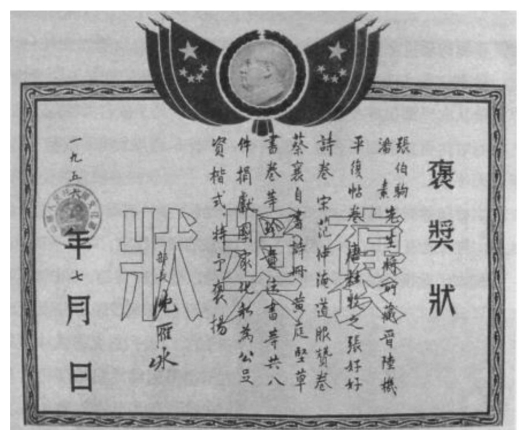 褒獎狀
張伯駒
潘素先生將所藏晉陸機
平復帖卷唐杜牧之張好好
詩卷宋范仲淹道服贊卷
蔡襄自書詩冊黃庭堅草
書卷等珍貴法書等共八
件捐獻國家化私為公足
資楷式特予褒揚
部長沈雁冰
一九五六年七月日
褒獎狀